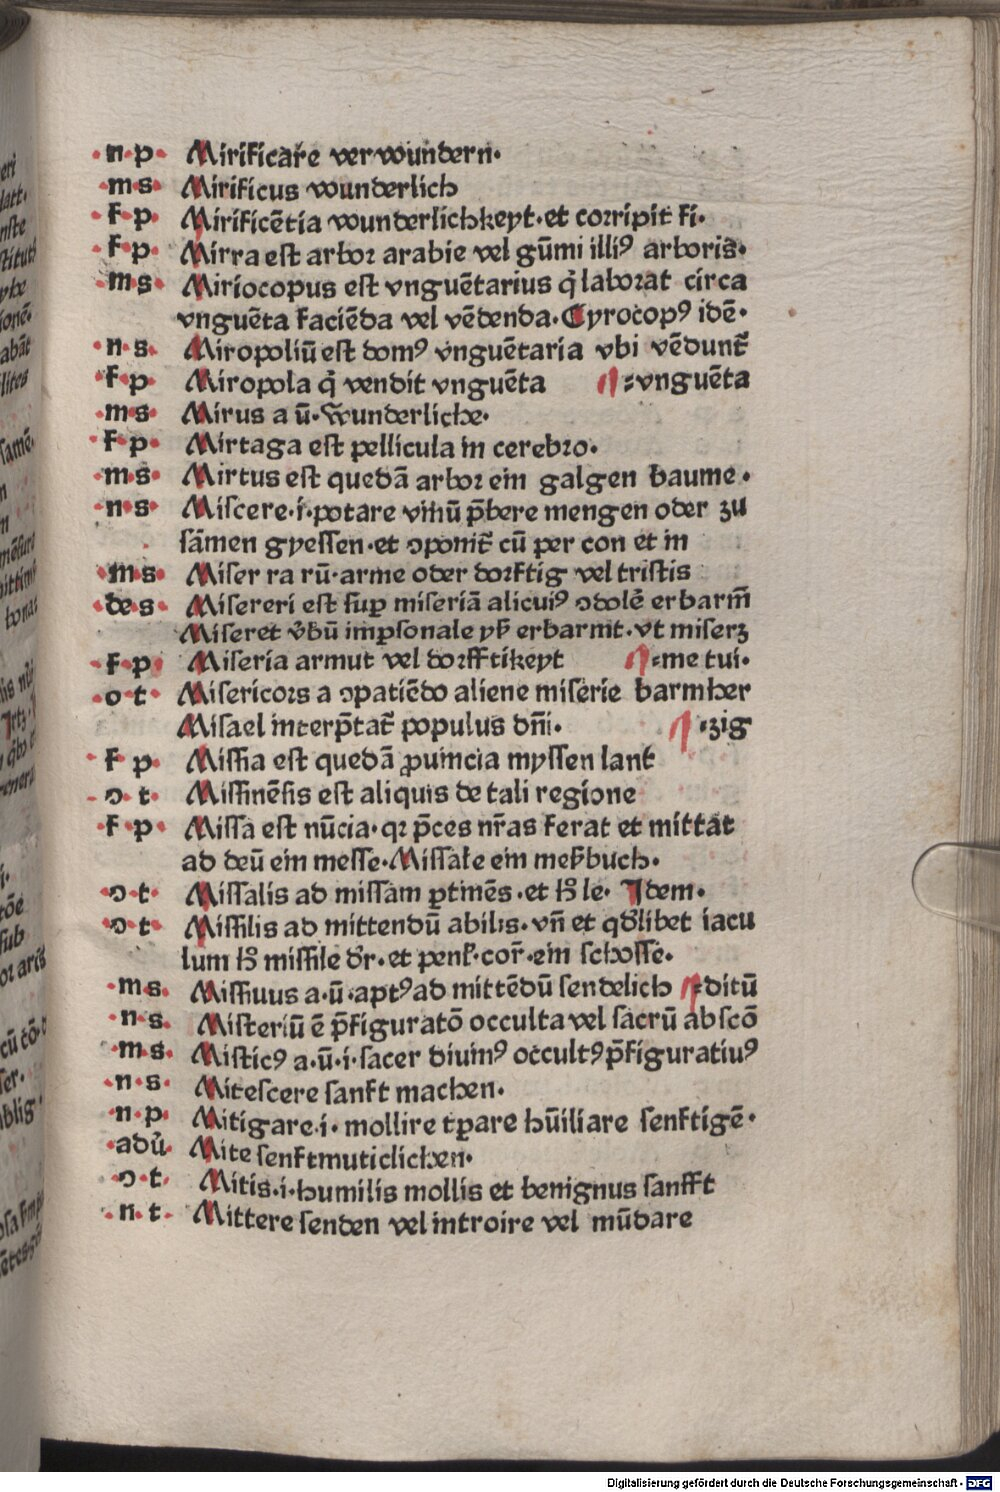 ·n·p· Mirificare verwundern·
·m·s· Mirificus wunderlich
·f·p· Mirificētia wunderlichkeyt·et corripit fi·
·f·p· Mirra est arbor arabie vel gūmi illiꝰ arboris·
·m·s· Miriocopus est vnguētarius q̇ laborat circa
vnguēta faciēda vel vēdenda·Cyrocopꝰ idē·
·n·s· Miropoliū est domꝰ vnguētaria vbi vēdunt᷑
·f·p· Miropola q̇ vendit vnguēta ¶ :vnguēta
·m·s· Mirus a ū·Wunderliche·
·f·p· Mirtaga est pellicula in cerebro·
·m·s· Mirtus est quedā arbor ein galgen baume·
·n·s· Miscere·i·potare vinū p̄bere mengen oder zu
sāmen gyessen·et ↄponit᷑ cū per con et in
·m·s· Miser ra rū·arme oder dorftig vel tristis
·de·s· Misereri est suꝑ miseriā alicuiꝰ ↄdolē erbarm̄
Miseret v̓bū imꝑsonale yb̓ erbarmt·vt miserꝫ
·f·p· Miseria armut vel dorfftikeyt ¶ :me tui·
·o·t· Misericors a ↄpatiēdo aliene miserie barmher
Misael interp̄tat᷑ populus dn̄i· ¶ ·zig
·f·p· Missia est quedā ꝓuincia myssen lant
·ↄ·t· Missinēsis est aliquis de tali regione
·f·p· Missa est nūcia·qꝛ p̄ces nr̄as ferat et mittat
ad deū ein messe·Missale ein meßbuch·
·ↄ·t· Missalis ad missam ꝑtinēs·et hꝫ le· Idem·
·ↄ·t· Missilis ad mittendū abilis·vn̄ et qd̓libet iacu
lum hꝫ missile dr̄·et penl̓·cor̄·ein schosse·
·m·s· Missiuus a·ū·aptꝰ ad mittēdū sendelich ¶:ditū
·n·s· Misteriū ē p̄figuratō occulta vel sacrū abscō
·m·s· Misticꝰ a·ū·i·sacer diuinꝰ occultꝰ p̄figuratiuꝰ
·n·s· Mitescere sanft machen·
·n·p· Mitigare·i·mollire tꝑare hūiliare senftigē·
·adū· Mite senftmuticlichen·
·ↄ·t· Mitis·i·humilis mollis et benignus sanfft
·n·t· Mittere senden vel introire vel mūdare
Digitalisierung gefördert durch die Deutsche Forschungsgemeinschaft - DFG